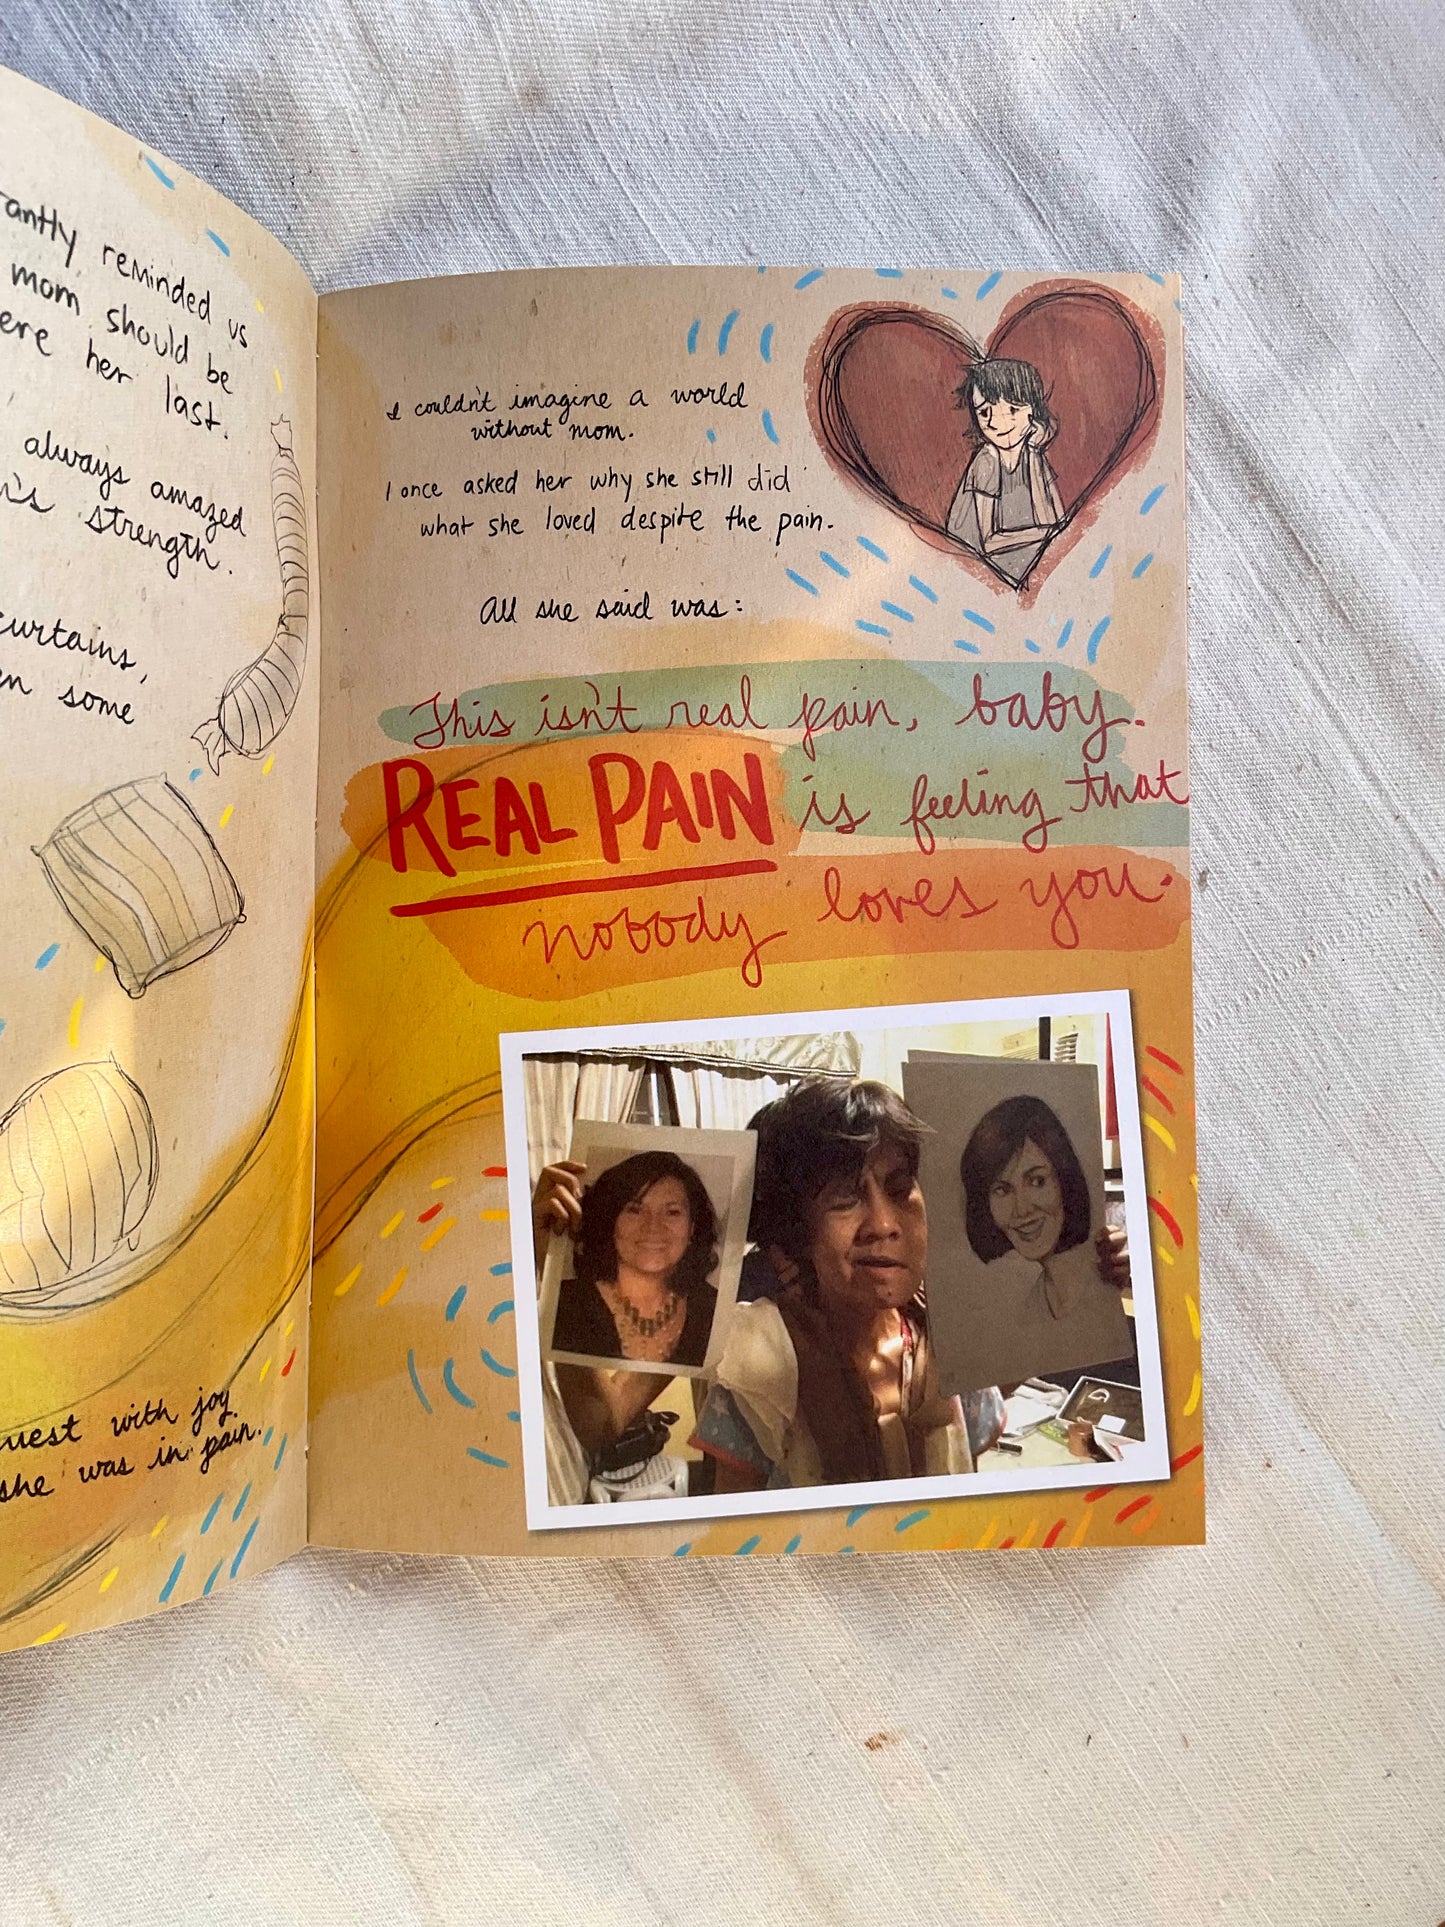 reminded us
mom should be
her last.
always amazed
strength.
curtains,
some
with joy
she was in pain.
I couldn't imagine a world
without mom.
I once asked her why she still did
what she loved despite the pain.
All she said was:
This isn't real pain, baby.
REAL PAIN is feeling that
nobody loves you.